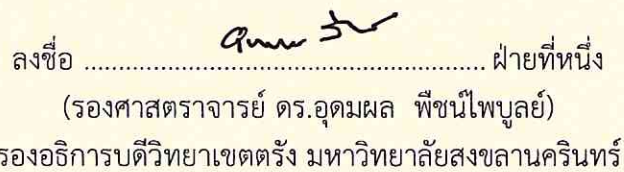 ลงชื่อ ........................................................ ฝ่ายที่หนึ่ง
(รองศาสตราจารย์ ดร.อุดมผล พืชน์ไพบูลย์)
รองอธิการบดีวิทยาเขตตรัง มหาวิทยาลัยสงขลานครินทร์